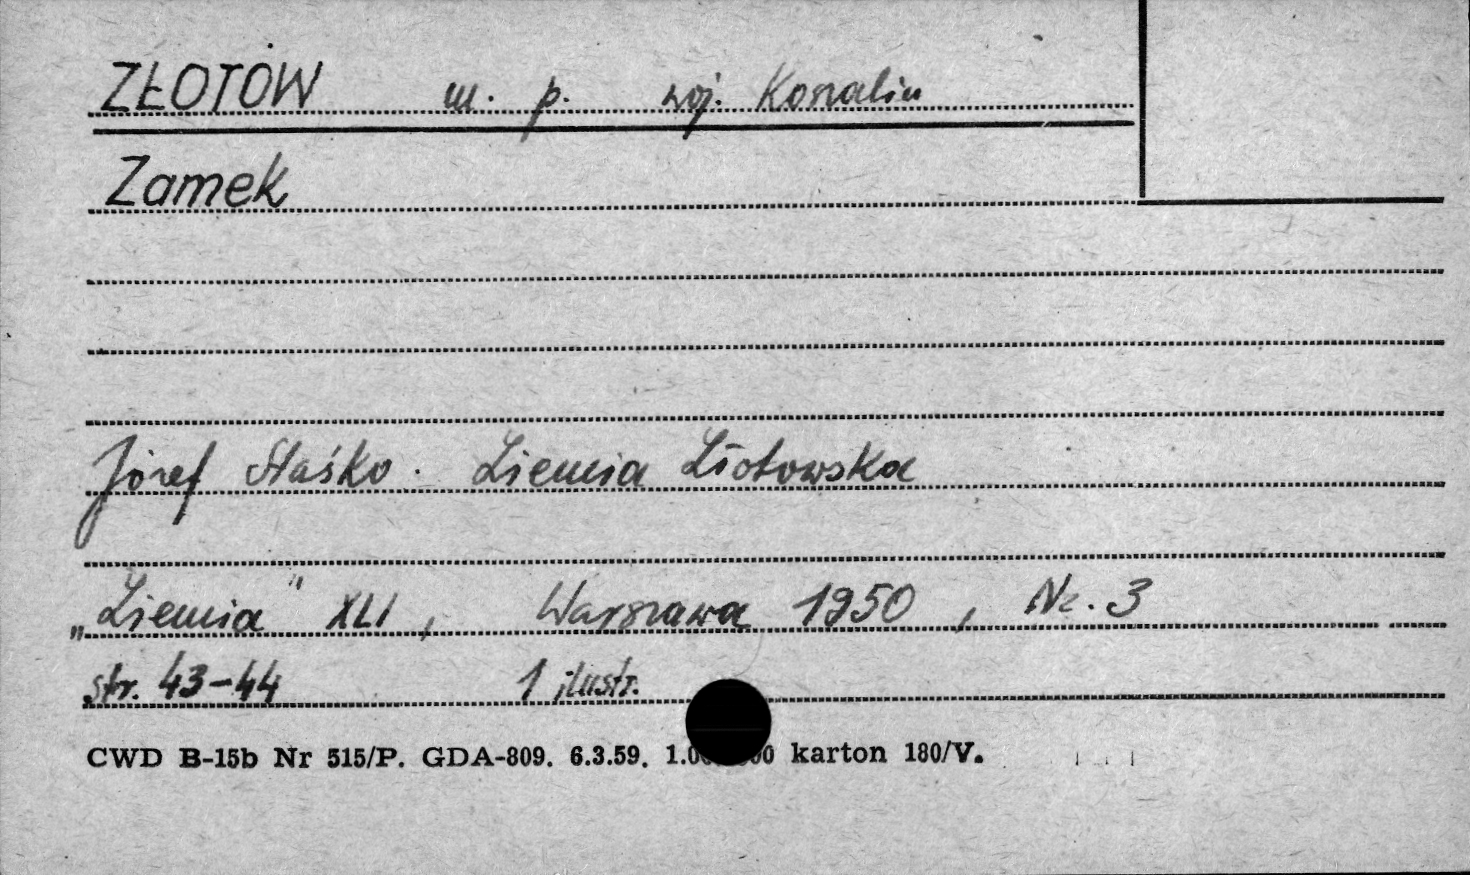 ZŁOTÓW m. p. woj. Koszalin
Zamek
Józef Staśko. Ziemia Złotowska
„Ziemia" XLI, Warszawa 1950, Nr. 3
str. 43-44 1 ilustr.
CWD B-15b Nr 515/P. GDA-809. 6.3.59. karton 180/V.